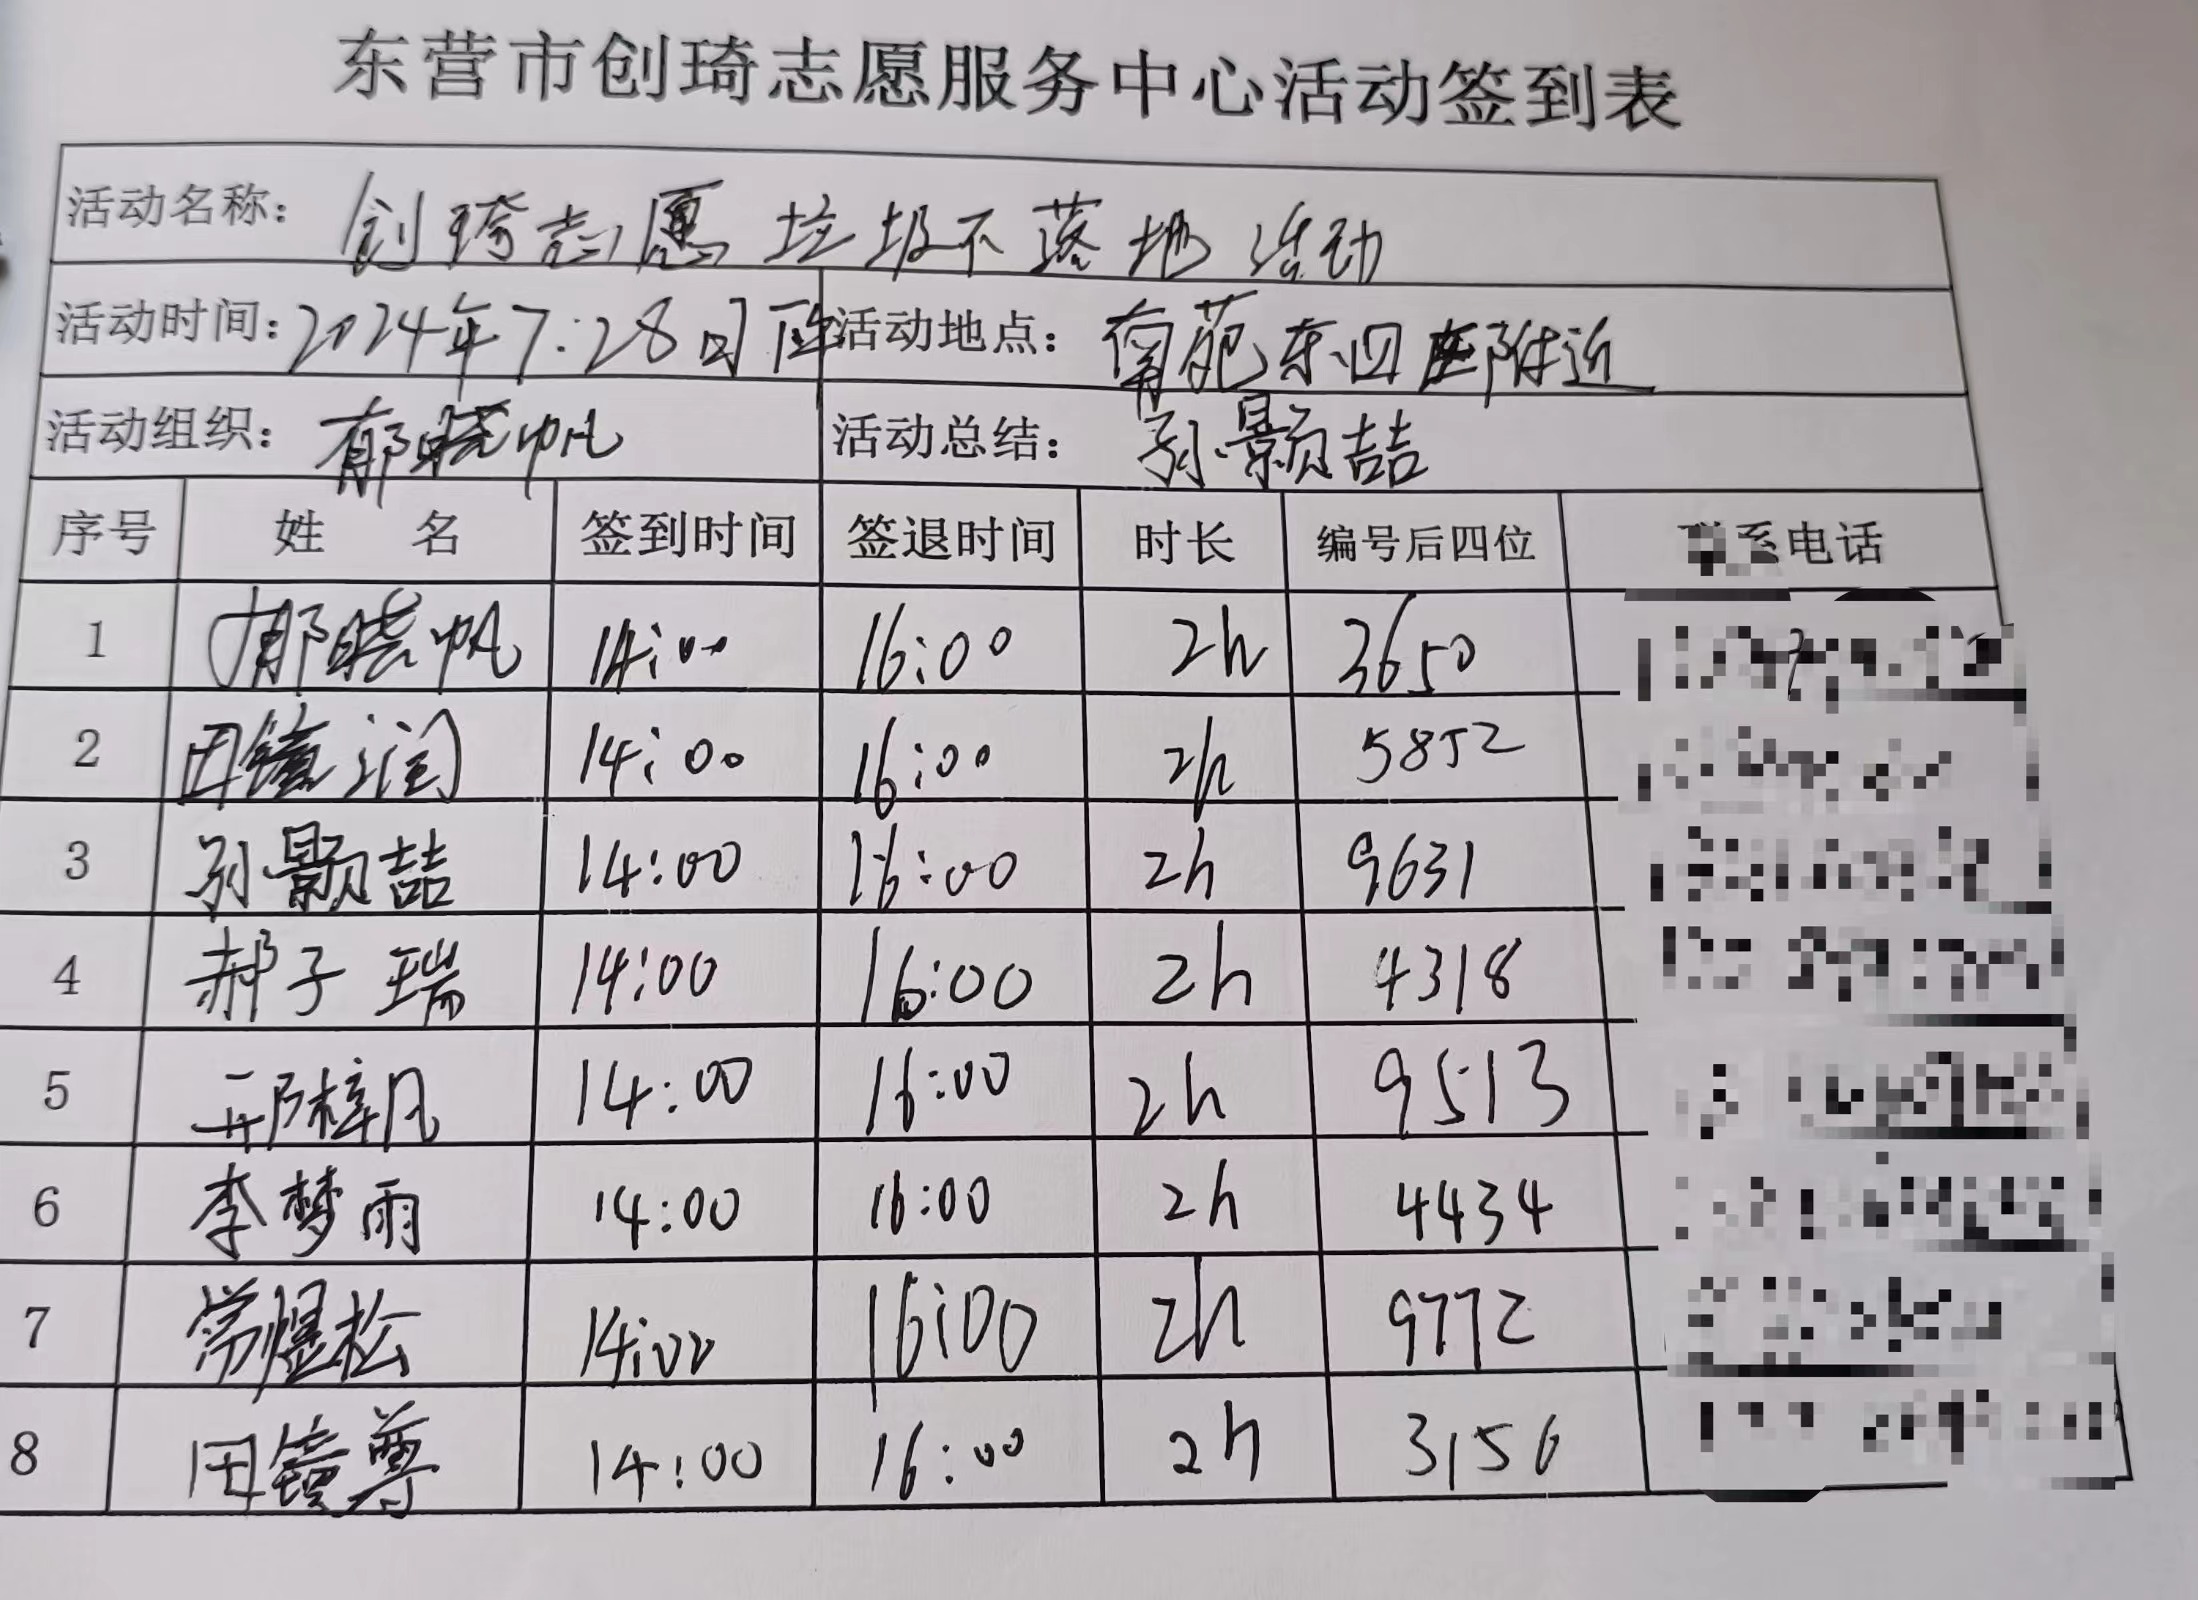 东营市创琦志愿服务中心活动签到表
活动名称: 创琦志愿垃圾不落地活动
活动时间: 2024年7.28日下午 活动地点: 南苑东四路附近
活动组织: 郁晓帆 活动总结: 孙颢喆
序号 姓 名 签到时间 签退时间 时长 编号后四位 联系电话
1 郁晓帆 14:00 16:00 2h 3650
2 田镜润 14:00 16:00 2h 5852
3 孙颢喆 14:00 16:00 2h 9631
4 郝子瑞 14:00 16:00 2h 4318
5 邢梓凡 14:00 16:00 2h 9513
6 李梦雨 14:00 16:00 2h 4434
7 常煜松 14:00 16:00 2h 9772
8 田镜尊 14:00 16:00 2h 3156